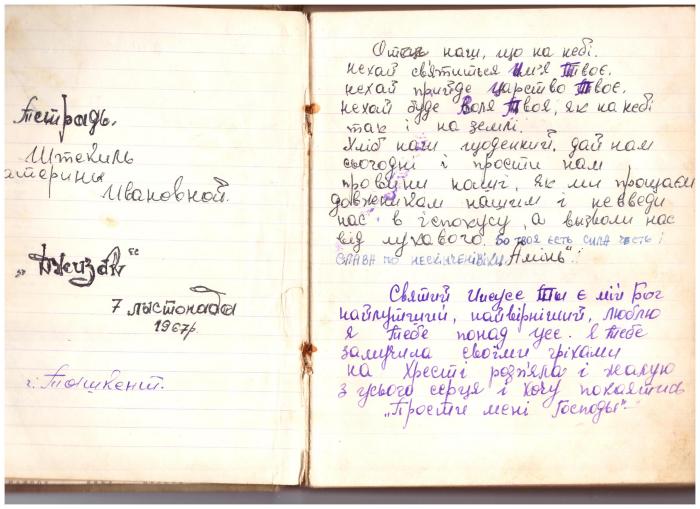 Тетрадь.
Штекиль
атерины
Ивановной.
„Джизак“
7 лыстопада
1967р.
г. Тошкент.
Отаць наш, що на небі.
нехай святиться имя Твоє.
нехай прийде царство Твоє.
нехай буде Воля Твоя, як на небі
так і на землі.
Хліб наш щоденний, дай нам
сьогодні і прости нам
провини наші, як ми прощаєм
довжникам нашим і не введи
нас в іспокусу, а визволи нас
від лукавого. Бо твоя єсть сила честь і
слава по нескінчені віки. Амінь“.
Святий Иисусе Ти є мій Бог
найлутший, найвірніший, люблю
я Тебе понад усе. Я Тебе
замучила своїми гріхами
на Хресті розпяла і жалую
з усього серця і хочу покаятись
„Прости мені Господы“